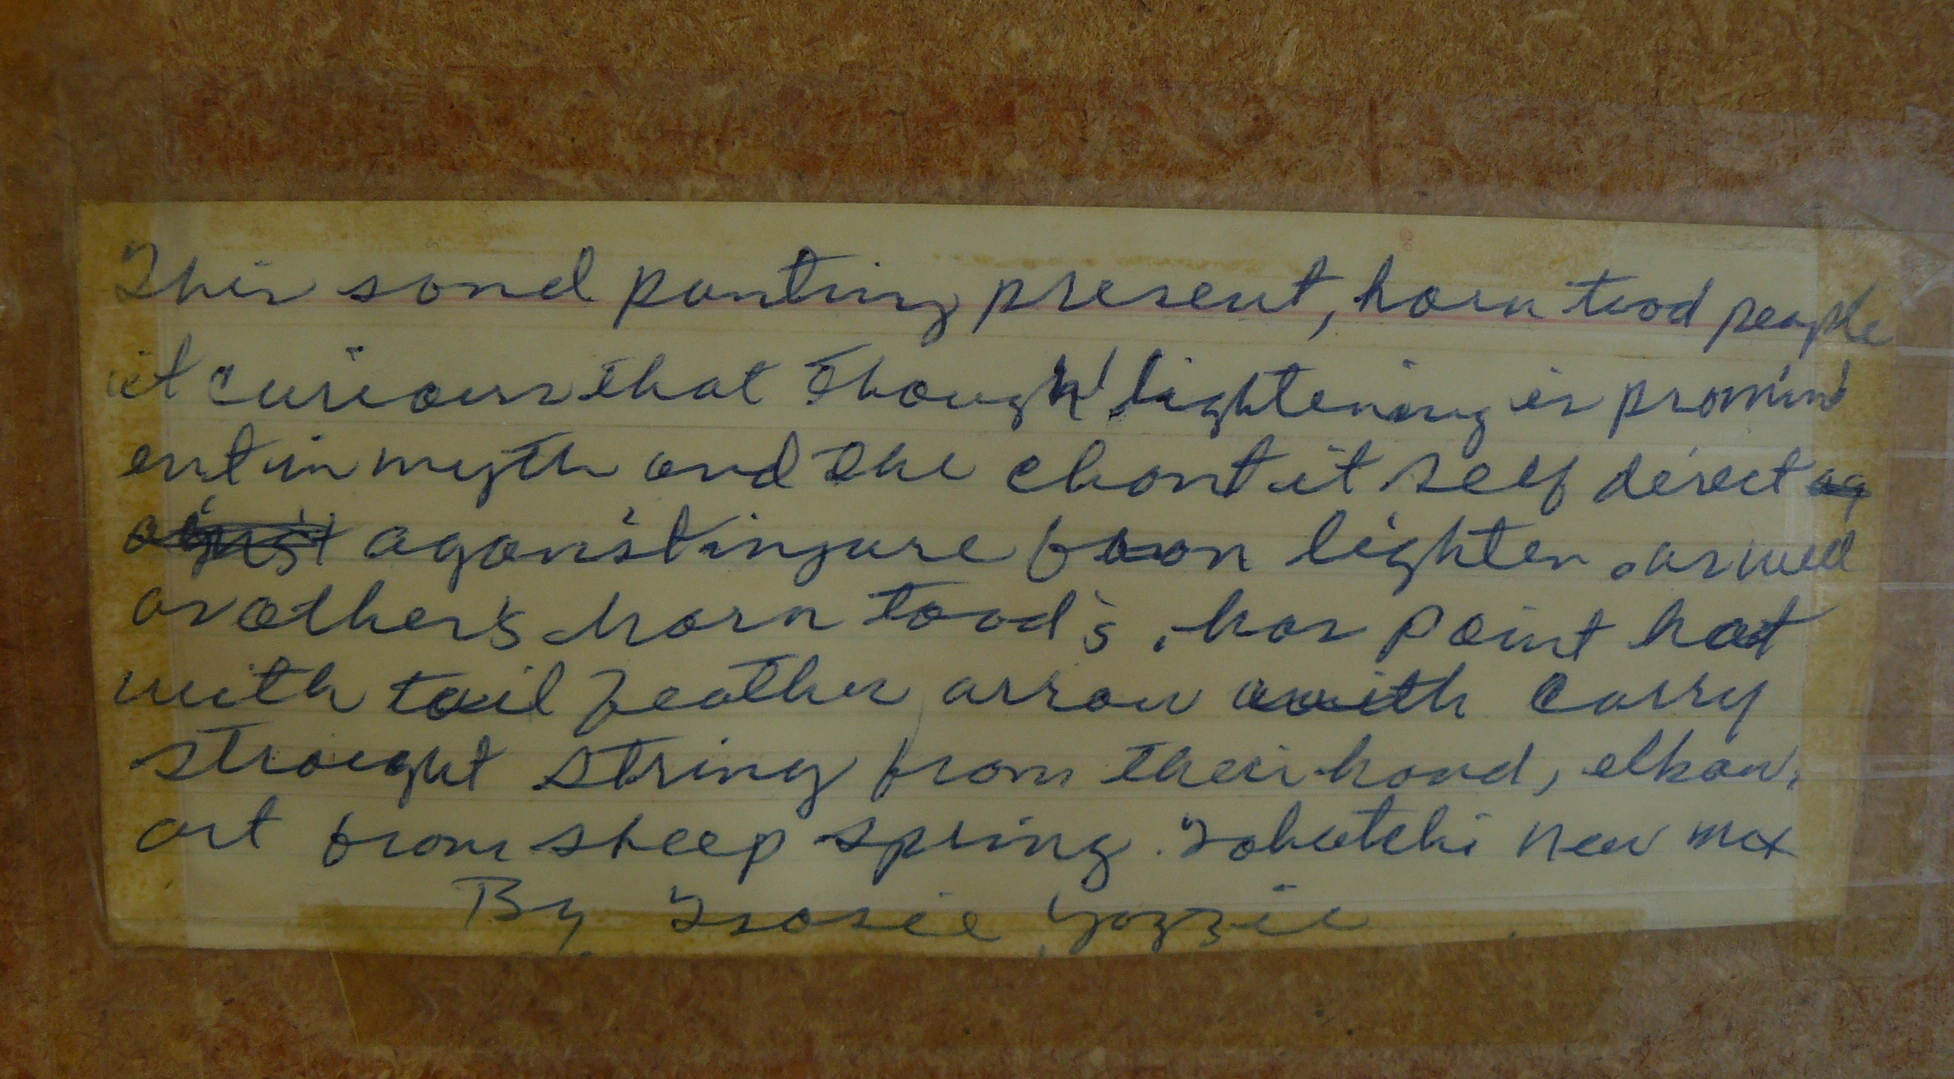 This sand panting present, horn toad people
it curious that though lightening is promin
ent in myth and the chant it self direct ag
against agansit injure from lighten. as well
as other's horn toad's. has point hat
with tail feather arrow with carry
straight string from their hand, elbow,
art from sheep spring. Tohatchi New Mex
By Tsosie Yazzie